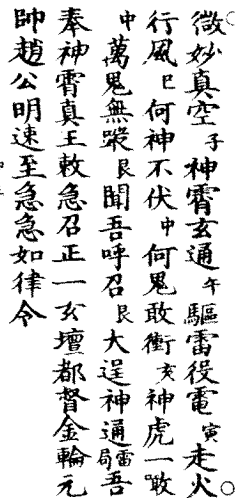 微妙真空子神霄玄通午驅雷役電寅走火
行風巳何神不伏中何鬼敢衝亥神虎一噉
中萬鬼無蹤艮聞吾呼召艮大逞神通雷局吾
奉神霄真王敕急召正一玄壇都督金輪元
帥趙公明速至急急如律令